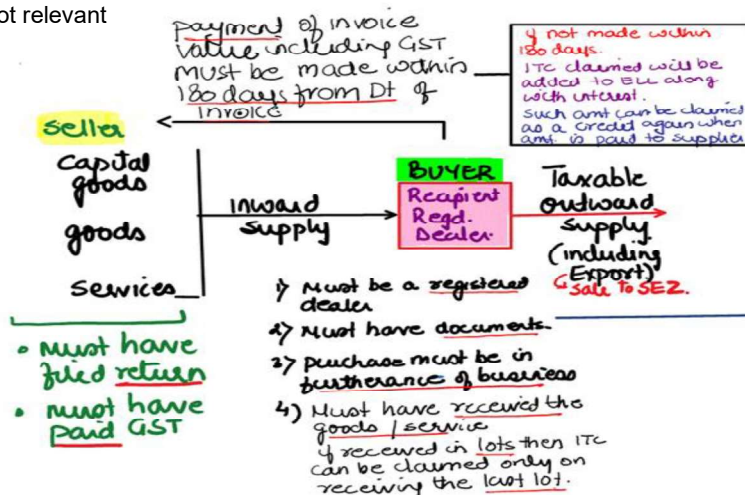 ot relevant
payment of invoice
value including GST
must be made within
180 days from Dt of
invoice
if not made within
180 days.
ITC claimed will be
added to ELL along
with interest.
such amt can be claimed
as a credit again when
amt. is paid to supplier
seller
capital
goods
goods
services
• must have
filed return
• must have
paid GST
inward
supply
BUYER
Recipient
Regd.
Dealer.
Taxable
outward
supply
(including
Export)
sale to SEZ.
1) Must be a registered
dealer
2) Must have documents.
3) purchase must be in
furtherance of business
4) Must have received the
goods / service
if received in lots then ITC
can be claimed only on
receiving the last lot.